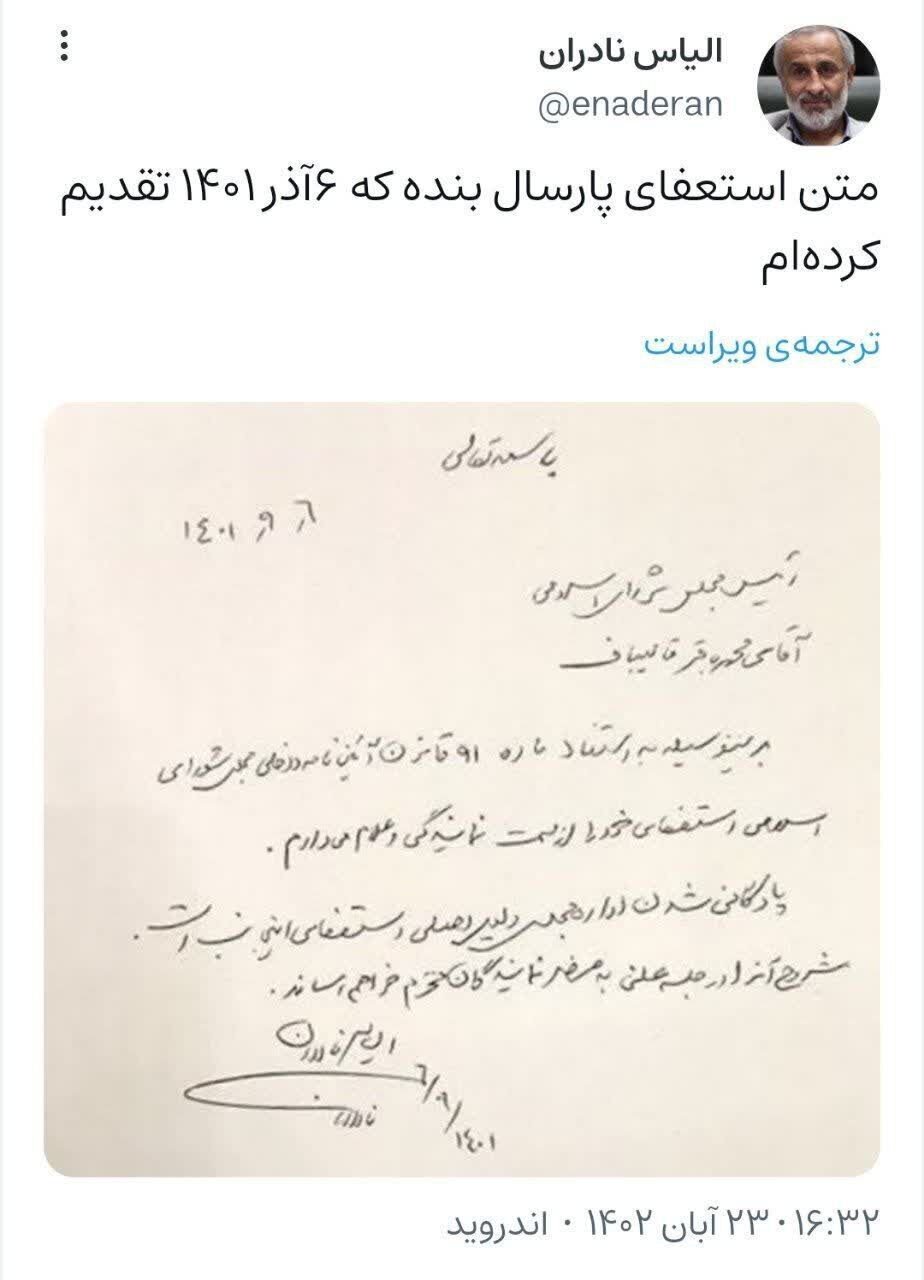 الیاس نادران
@enaderan
متن استعفای پارسال بنده که ۶آذر ۱۴۰۱ تقدیم
کرده‌ام
ترجمه‌ی ویراست
باسمه تعالی
٦ ر ۹ ر ۱٤۰۱
رئیس مجلس شورای اسلامی
آقای محمدباقر قالیباف
بدینوسیله به استناد ماده ۹۱ قانون آئین نامه داخلی مجلس شورای
اسلامی استعفای خود را از سمت نمایندگی اعلام می‌دارم.
پادگانی شدن اداره مجلس دلیل اصلی استعفای اینجانب است.
شروح آنرا در جلسه علنی به محضر نمایندگان محترم خواهم رساند.
الیاس نادران
٦/۹/۱٤۰۱
نادران
۱۶:۳۲ · ۲۳ آبان ۱۴۰۲ · اندروید